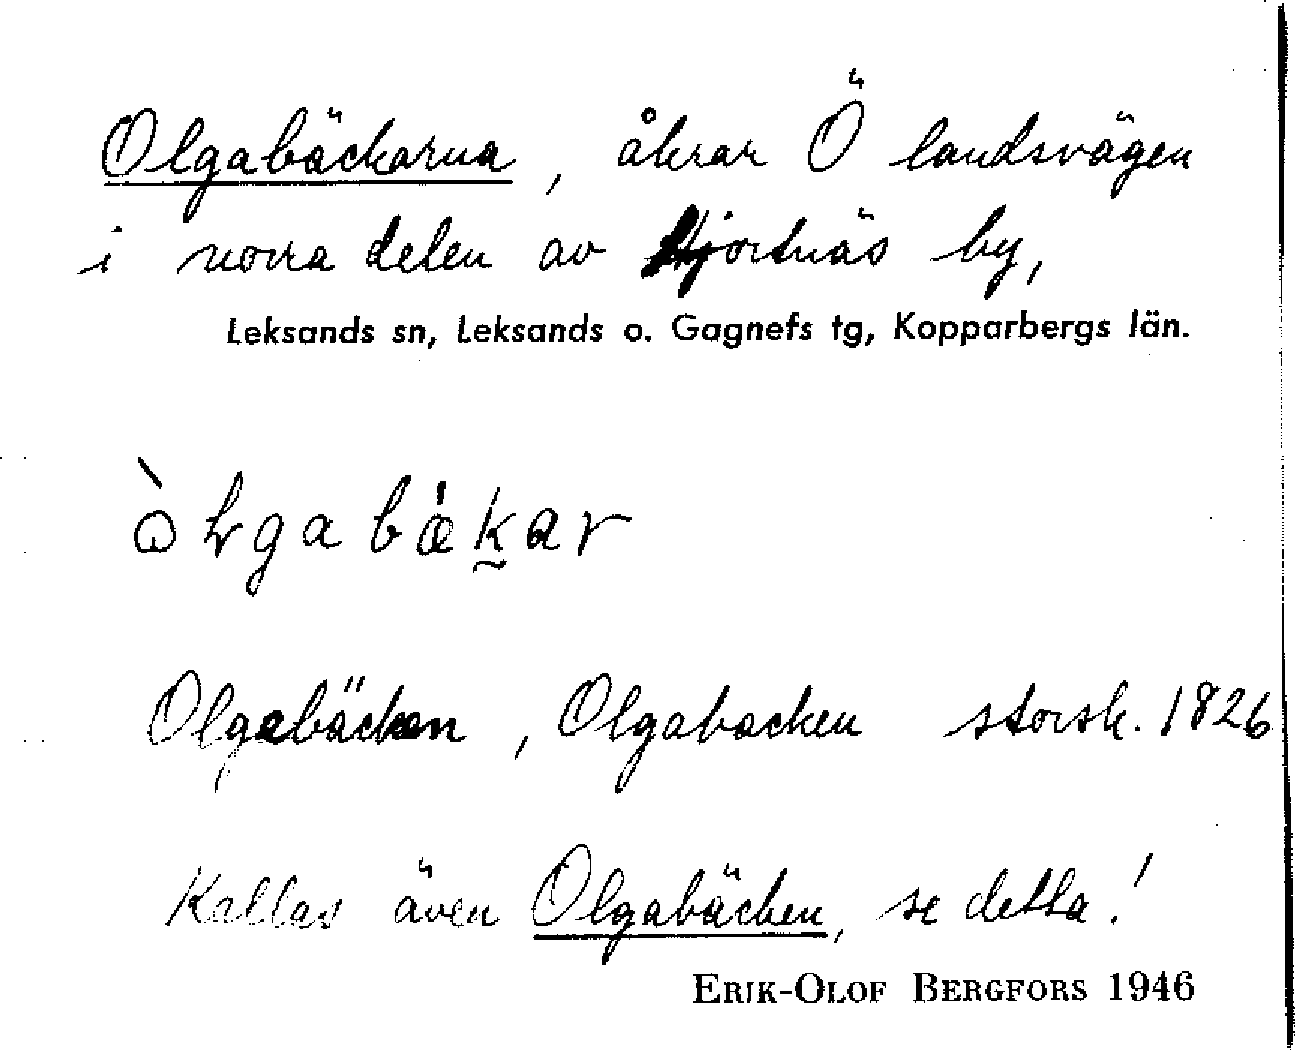 Olgabäckarna, åkrar Ö landsvägen
i norra delen av Hjortnäs by,
Leksands sn, Leksands o. Gagnefs tg, Kopparbergs län.
òlgabákar
Olgabäcken, Olgabacken storsk. 1826
Kallas även Olgabäcken, se detta!
ERIK-OLOF BERGFORS 1946